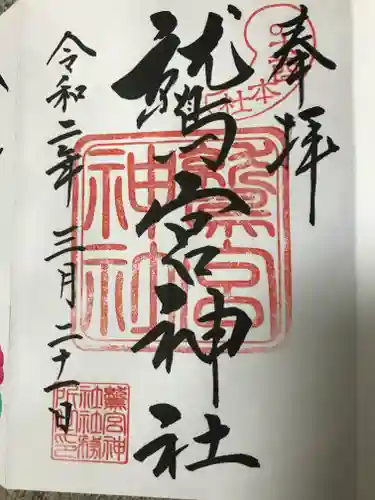 奉拝
本社
鷲宮神社
鷲宮神社
令和二年三月二十一日
鷲宮神
社社務
所印